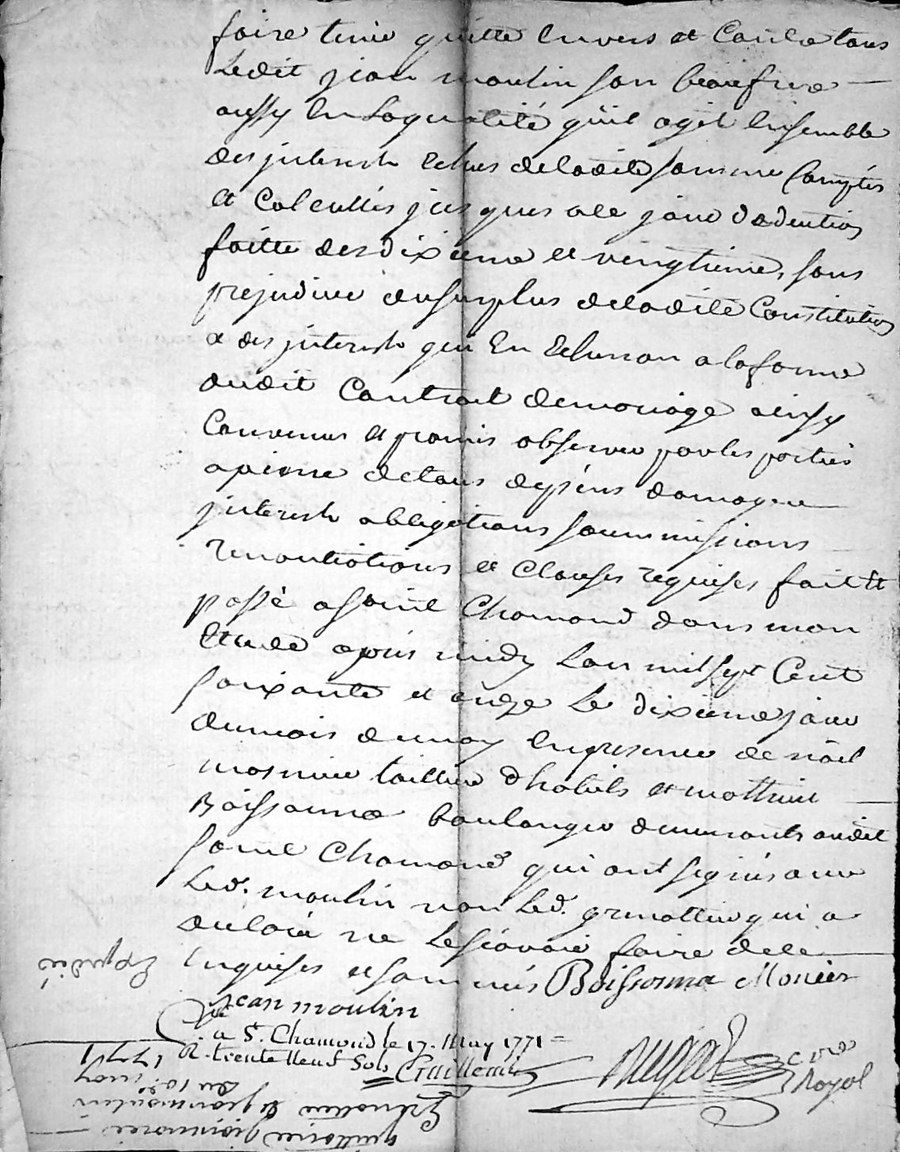 faire tenir quitte Envers et Contre tous
Ledit jean moulin son beaufrere
aussy En Saqualité quil agit Ensemble
des jnterests Echus deladite somme Comptés
et Calculés jusques a ce jour dedention
faitte des dixieme et vingtieme, sans
prejudice dusurplus deladite Constitution
& des jnterests qui En Echerron a laforme
dudit Contrat demariage ainsy
Convenus et promis observer par les parties
apeine detous depens damages
jnterests obligations soummissions
renontiations et Clauses requises fait et
passé a Saint Chamond dans mon
Etude apres midy Lan mil sept Cent
soixante et onze Le dixieme jour
dumois de may Enpresence de noel
monnier tailleur d'habits et
Boissonna boulanger demeurants audit
Saint Chamond qui ont signés avec
Led. moulin non Led. qui a
declaré ne Lesçavoir faire dece
Enquises et sommés Boissonna Monier
Jean moulin
a St. Chamond le 17. May 1771
R. trente neuf Sols
Nore Royal
Expedié
quittance
jean moulin
du 10e may
1771